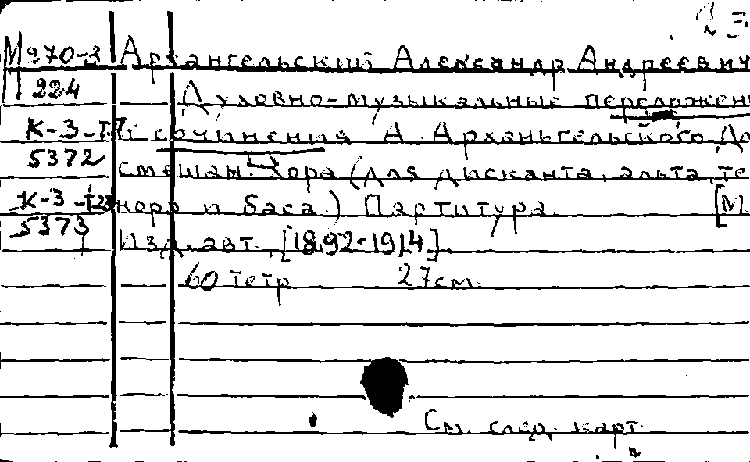 М 270-3 Архангельский Александр Андреевич
224 Духовно-музыкальные переложени
К-3- и сочинения А. Архангельского Дл
5372 смешан. хора (для дисканта, альта, те
К-3- нора и баса.) Партитура. [М
5373 Изд. авт., [1892-1914].
60 тетр 27 см.
См. след. карт.